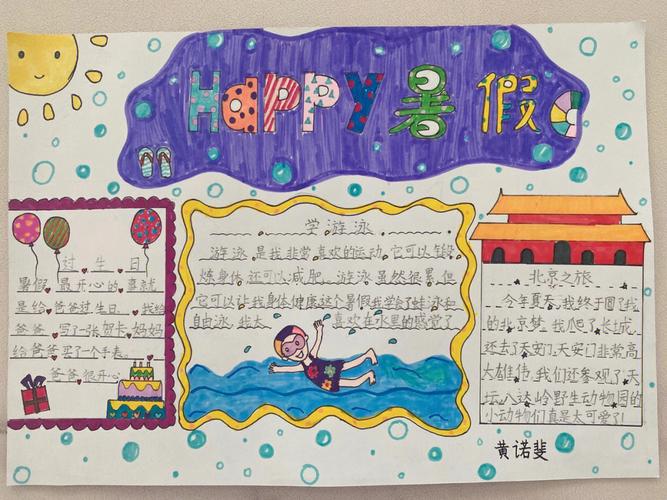 HaPPY暑假
过生日
暑假最开心的事就
是给爸爸过生日。我给
爸爸写了一张贺卡,妈妈
给爸爸买了一个手表。
爸爸很开心
学游泳
游泳是我非常喜欢的运动,它可以锻
炼身体还可以减肥。游泳虽然很累,但
它可以让我身体健康这个暑假我学了蛙泳和
自由泳,我太喜欢在水里的感觉了
北京之旅
今年夏天,我终于圆了我
的北京梦。我爬了长城
还去了天安门,天安门非常高
大雄伟。我们还参观了天
坛八达岭野生动物园的
小动物们真是太可爱了!
黄诺斐